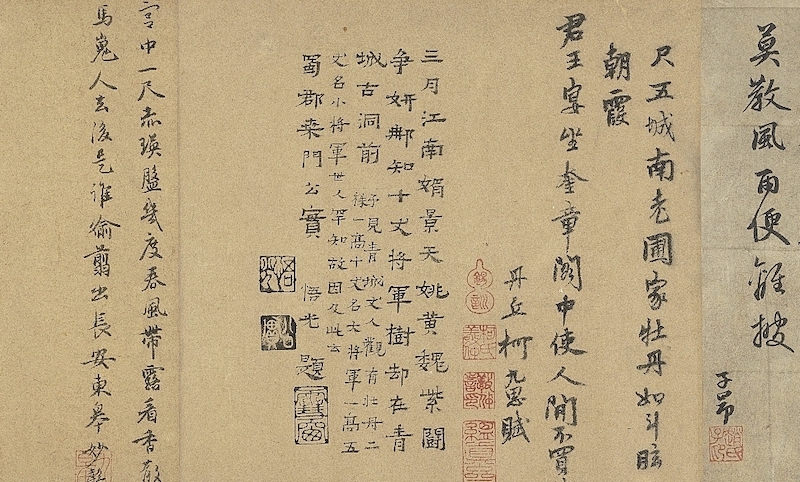 莫教風雨便離披
子昂
趙氏子昂
尺五城南老圃家牡丹如斗眩
朝霞
君王宴坐奎章閣中使人間不買
丹丘柯九思賦
柯氏敬仲
三月江南媚景天姚黃魏紫鬭
争妍那知十丈將軍樹却在青
城古洞前
予見青城丈人觀有牡丹二
株一高十丈名大將軍一高五
丈名小將軍世人罕知故因及此云
蜀郡桒門公實 悟光 題
宮中一尺赤瑛盤幾度春風帶露看香散
馬嵬人去後是誰偷翦出長安東皋妙